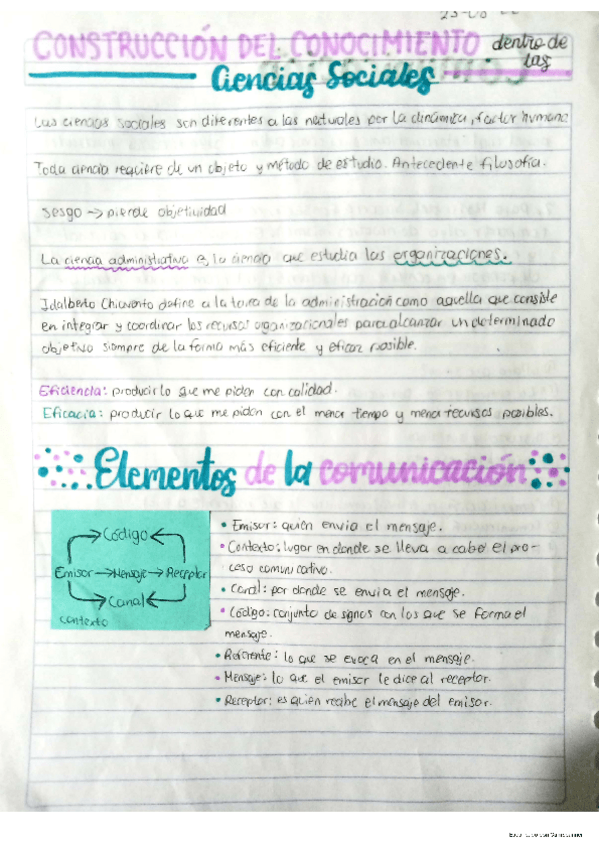 CONSTRUCCIÓN DEL CONOCIMIENTO dentro de
las
Ciencias Sociales
Las ciencias sociales son diferentes a las naturales por la dinámica, factor humano
Toda ciencia requiere de un objeto y método de estudio. Antecedente filosofía.
sesgo → pierde objetividad
La ciencia administrativa es la ciencia que estudia las organizaciones.
Idalberto Chiavento define a la tarea de la administración como aquella que consible
en integrar y coordinar los recursos organizacionales para alcanzar un determinado
objetivo siempre de la forma más eficiente y eficaz posible.
Eficiencia: producir lo que me piden con calidad.
Eficacia: producir lo que me piden con el menor tiempo y menor recursos posibles.
Elementos de la comunicación
Código
Emisor → Mensaje → Receptor
Canal
contexto
• Emisor: quién envía el mensaje.
• Contexto: lugar en donde se lleva a cabo el pro-
ceso comunicativo.
• Canal: por donde se envia el mensaje.
• Código: conjunto de signos con los que se forma el
mensaje.
• Referente: lo que se evoca en el mensaje.
• Mensaje: lo que el emisor le dice al receptor.
• Receptor: es quien recibe el mensaje del emisor.